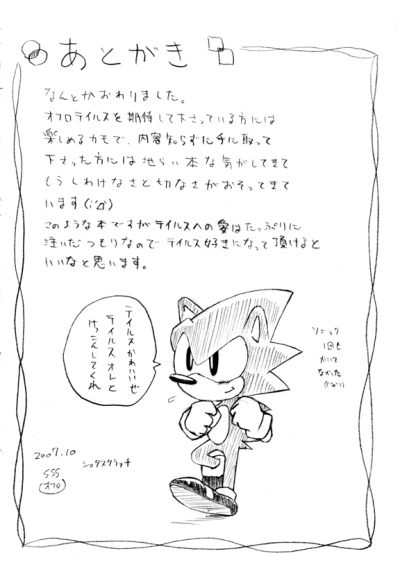 あとがき
なんとかおわりました。
オフロテイルスを期待して下さっている方には
楽しめるカモで、内容知らずに手に取って
下さった方には地らい本な気がしてきて
もうしわけなさと切なさがおそってきて
います
このような本ですがテイルスへの愛はたっぷりに
注いだつもりなのでテイルス好きになって頂けると
いいなと思います。
テイルスかわいいぜ
テイルスオレと
けっこんしてくれ
ソニック
1回も
かいて
なかった
2007.10
SSS
オフロ